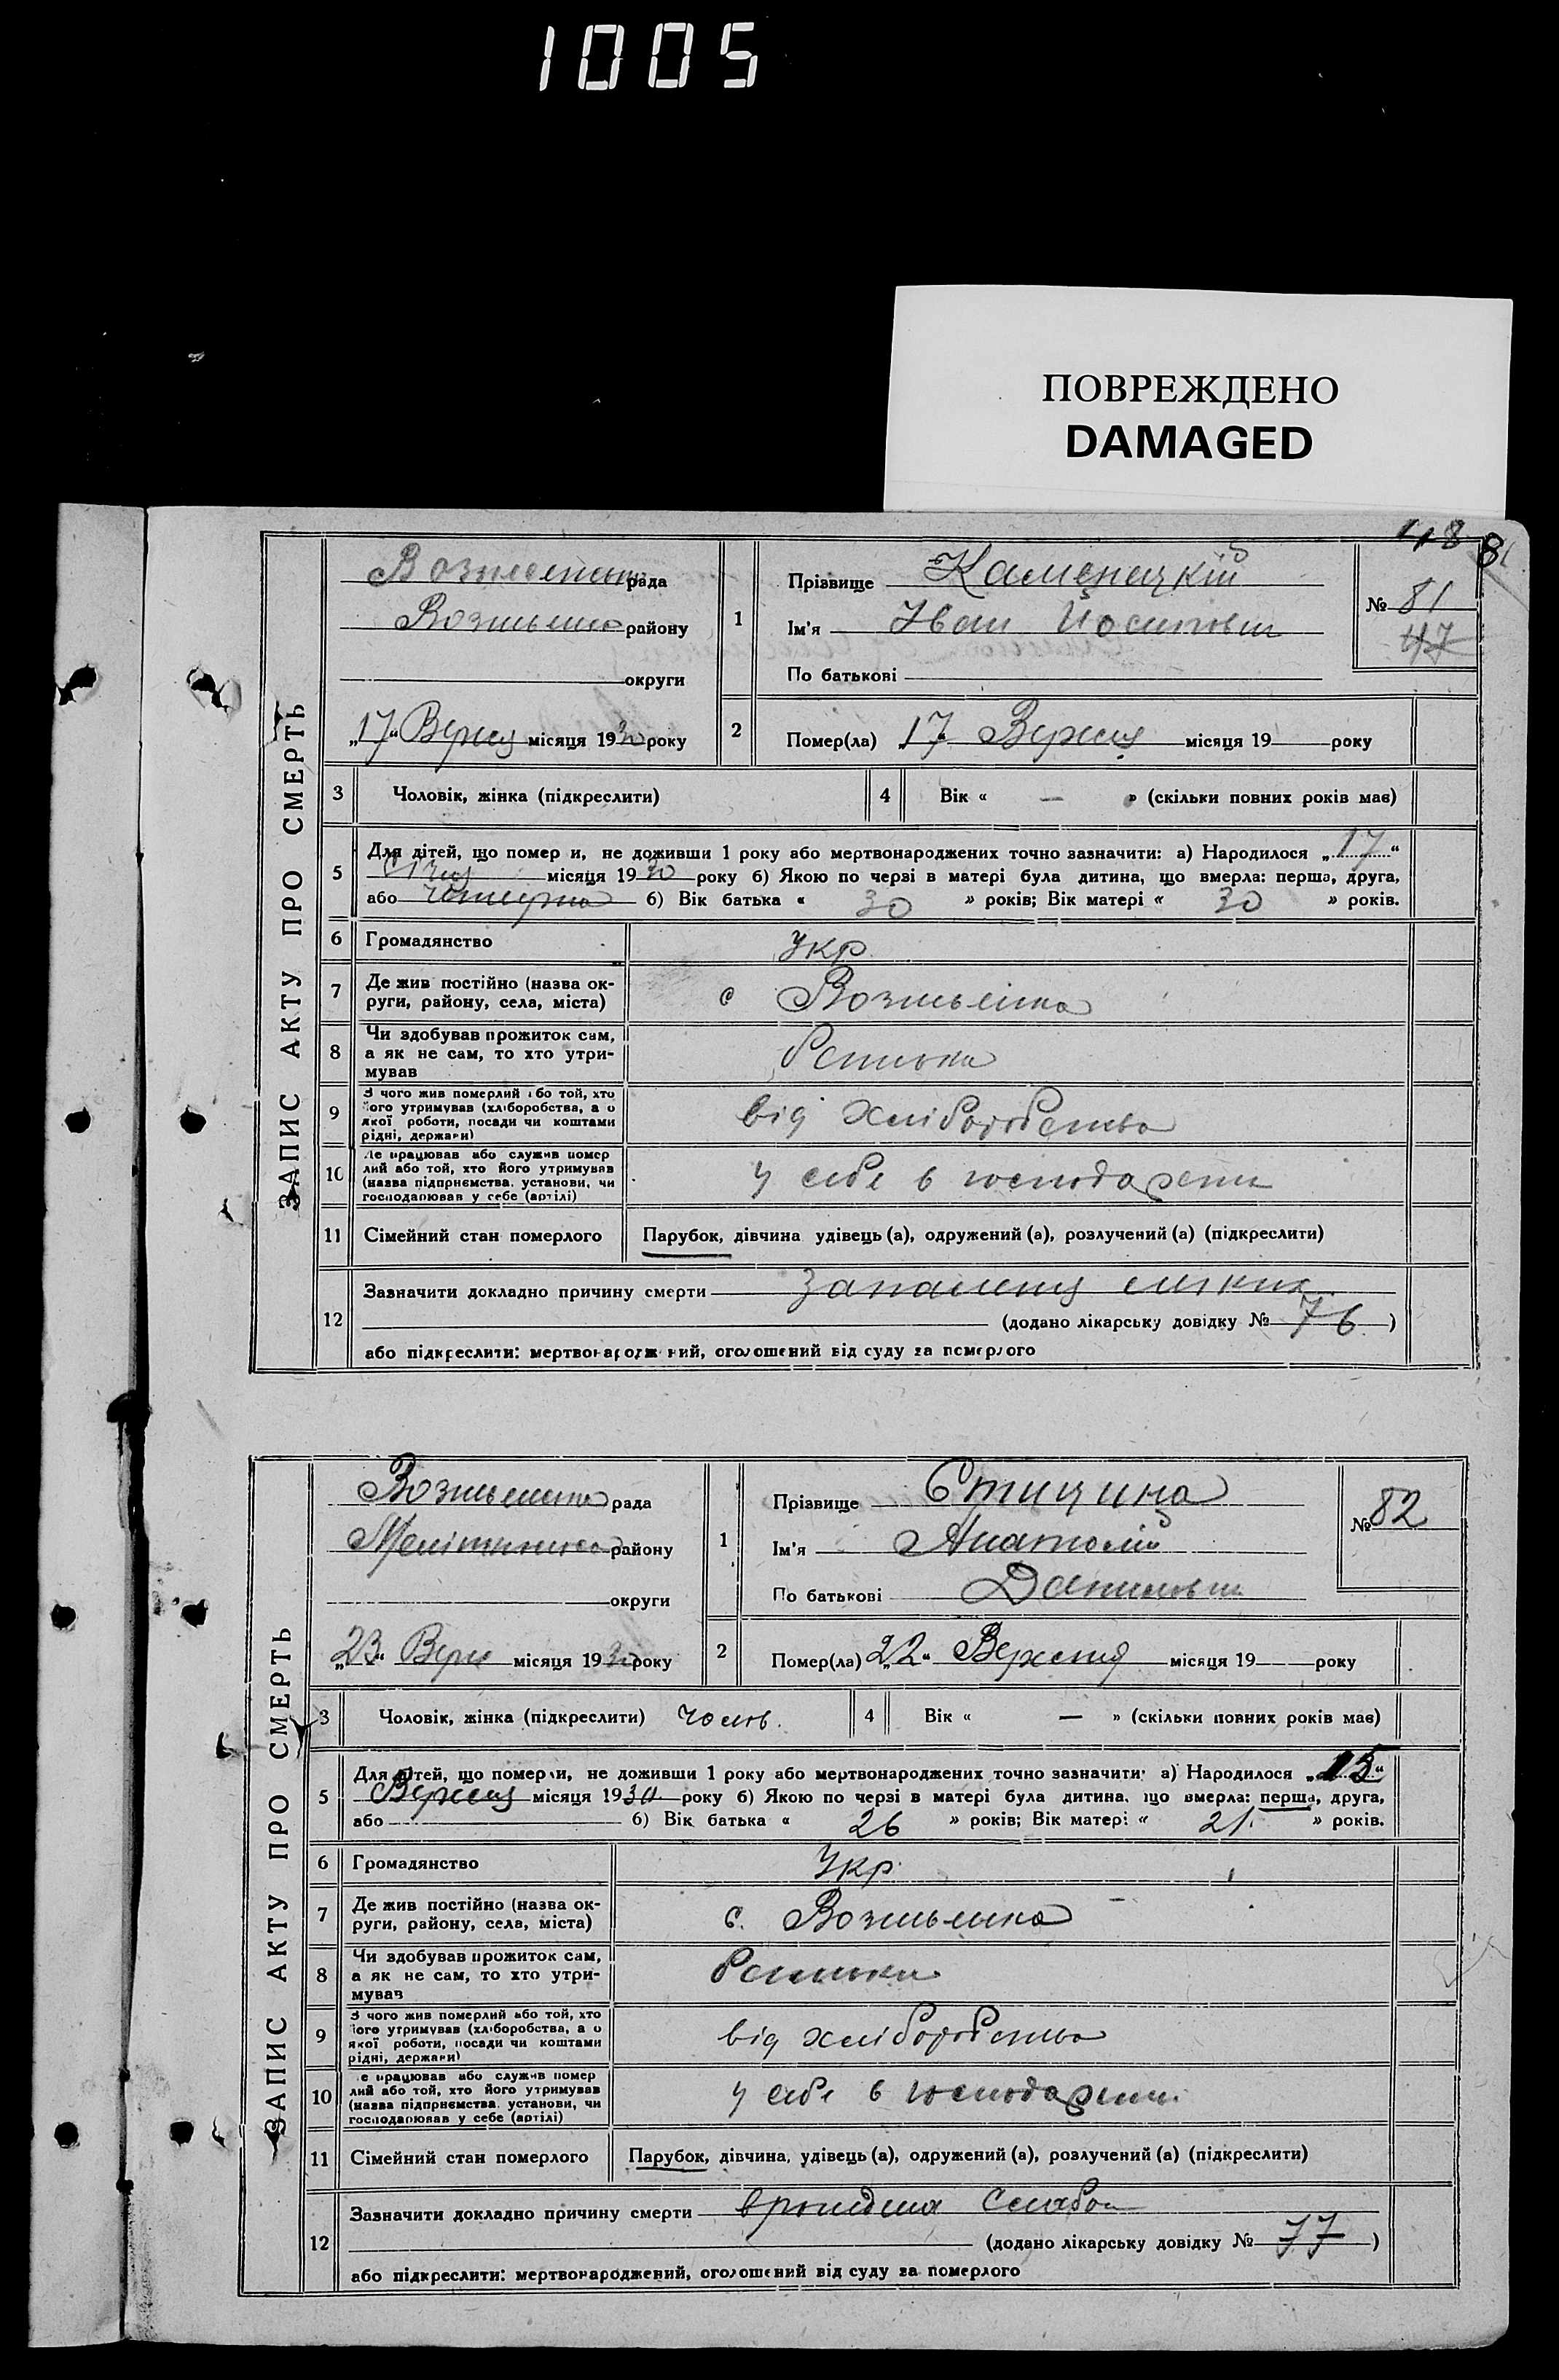 1005
ПОВРЕЖДЕНО
DAMAGED
48 81
ЗАПИС АКТУ ПРО СМЕРТЬ
рада
району
округи
„17“ Верня місяця 1930 року
1
Прізвище Каменецкій
Ім'я Іван Йосипович
По батькові
№ 81
47
2
Помер(ла) „17“ Верня місяця 19 року
3 Чоловік, жінка (підкреслити)
4 Вік « — » (скільки повних років має)
5 Для дітей, що помер и, не доживши 1 року або мертвонароджених точно зазначити: а) Народилося „17“
Січня місяця 1930 року б) Якою по черзі в матері була дитина, що вмерла: перша, друга,
або четверта б) Вік батька « 30 » років; Вік матері « 30 » років.
6 Громадянство Укр.
7 Де жив постійно (назва ок-
руги, району, села, міста)
с Вознесенка
8 Чи здобував прожиток сам,
а як не сам, то хто утри-
мував
батьки
9 З чого жив померлий або той, хто
його утримував (хліборобства, а о
якої роботи, посади чи коштами
рідні, держави)
від хліборобства
10 Де працював або служив помер
лий або той, хто його утримував
(назва підприємства, установи, чи
господарював у себе (артілі)
у себе в господарстві
11 Сімейний стан померлого Парубок, дівчина удівець (а), одружений (а), розлучений (а) (підкреслити)
12 Зазначити докладно причину смерти запалення легких
(додано лікарську довідку № 76)
або підкреслити: мертвонароджений, оголошений від суду за померлого
ЗАПИС АКТУ ПРО СМЕРТЬ
рада
району
округи
„23“ Верн місяця 1930 року
1
Прізвище Стицина
Ім'я Анатолій
По батькові Данилович
№ 82
2
Помер(ла) „22“ Вересня місяця 19 року
3 Чоловік, жінка (підкреслити) чолов.
4 Вік « — » (скільки повних років має)
5 Для дітей, що померли, не доживши 1 року або мертвонароджених точно зазначити: а) Народилося „15“
Вересня місяця 1930 року б) Якою по черзі в матері була дитина, що вмерла: перша, друга,
або б) Вік батька « 26 » років; Вік матері « 21 » років.
6 Громадянство Укр.
7 Де жив постійно (назва ок-
руги, району, села, міста)
с. Вознесенка
8 Чи здобував прожиток сам,
а як не сам, то хто утри-
мував
батьки
9 З чого жив померлий або той, хто
його утримував (хліборобства, а о
якої роботи, посади чи коштами
рідні, держави)
від хліборобства
10 Де працював або служив помер
лий або той, хто його утримував
(назва підприємства, установи, чи
господарював у себе (артілі)
у себе в господарстві
11 Сімейний стан померлого Парубок, дівчина, удівець (а), одружений (а), розлучений (а) (підкреслити)
12 Зазначити докладно причину смерти
(додано лікарську довідку № 77)
або підкреслити: мертвонароджений, оголошений від суду за померлого